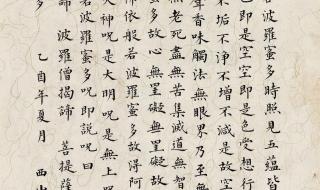 若波羅蜜多時照見五蘊皆
即是空空即是色受想行
不垢不淨不增不減是故空
聲香味觸法無眼界乃至無
無老死盡無苦集滅道無智
多故心無罣礙無罣礙故
佛依般若波羅蜜多故得阿
大神咒是大明咒是無上
若波羅蜜多咒即說咒曰
諦 波羅僧揭諦 菩提薩
多 乙酉年夏月 西